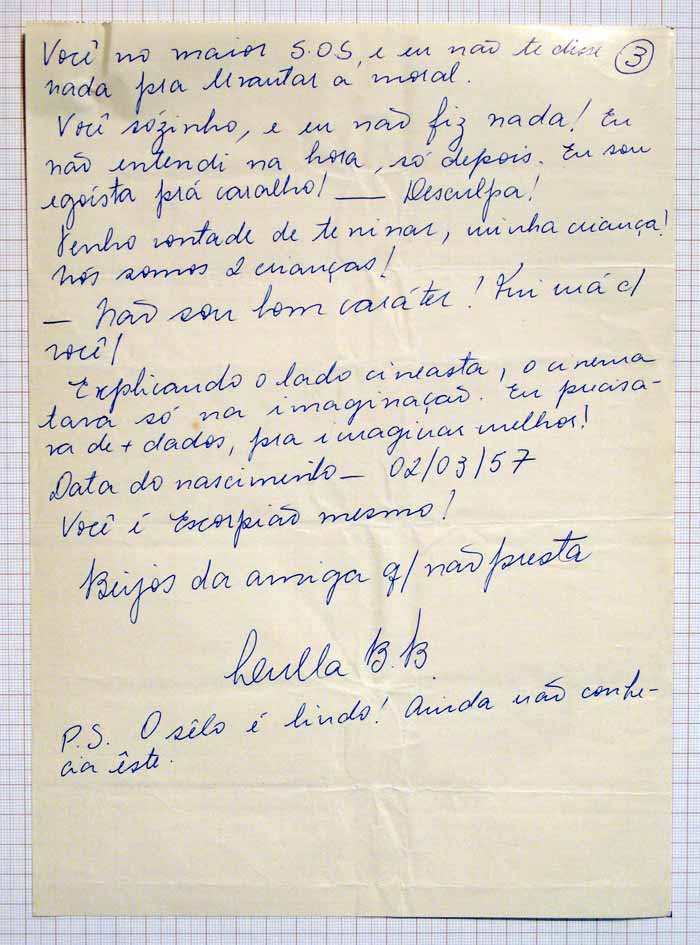 Você no maior S.O.S, e eu não te disse 3
nada pra levantar a moral.
Você sózinho, e eu não fiz nada! Eu
não entendi na hora, só depois. Eu sou
egoísta prá caralho! — Desculpa!
Tenho vontade de te ninar, minha criança!
Nós somos 2 crianças!
— Não sou bom caráter! Fui má c/
você!
Explicando o lado cineasta, o cinema
tava só na imaginação. Eu precisa-
va de + dados, pra imaginar melhor!
Data do nascimento — 02/03/57
Você é Escorpião mesmo!
Beijos da amiga q/ não presta
B.B
P.S. O sêlo é lindo! Ainda não conhe-
cia êste.